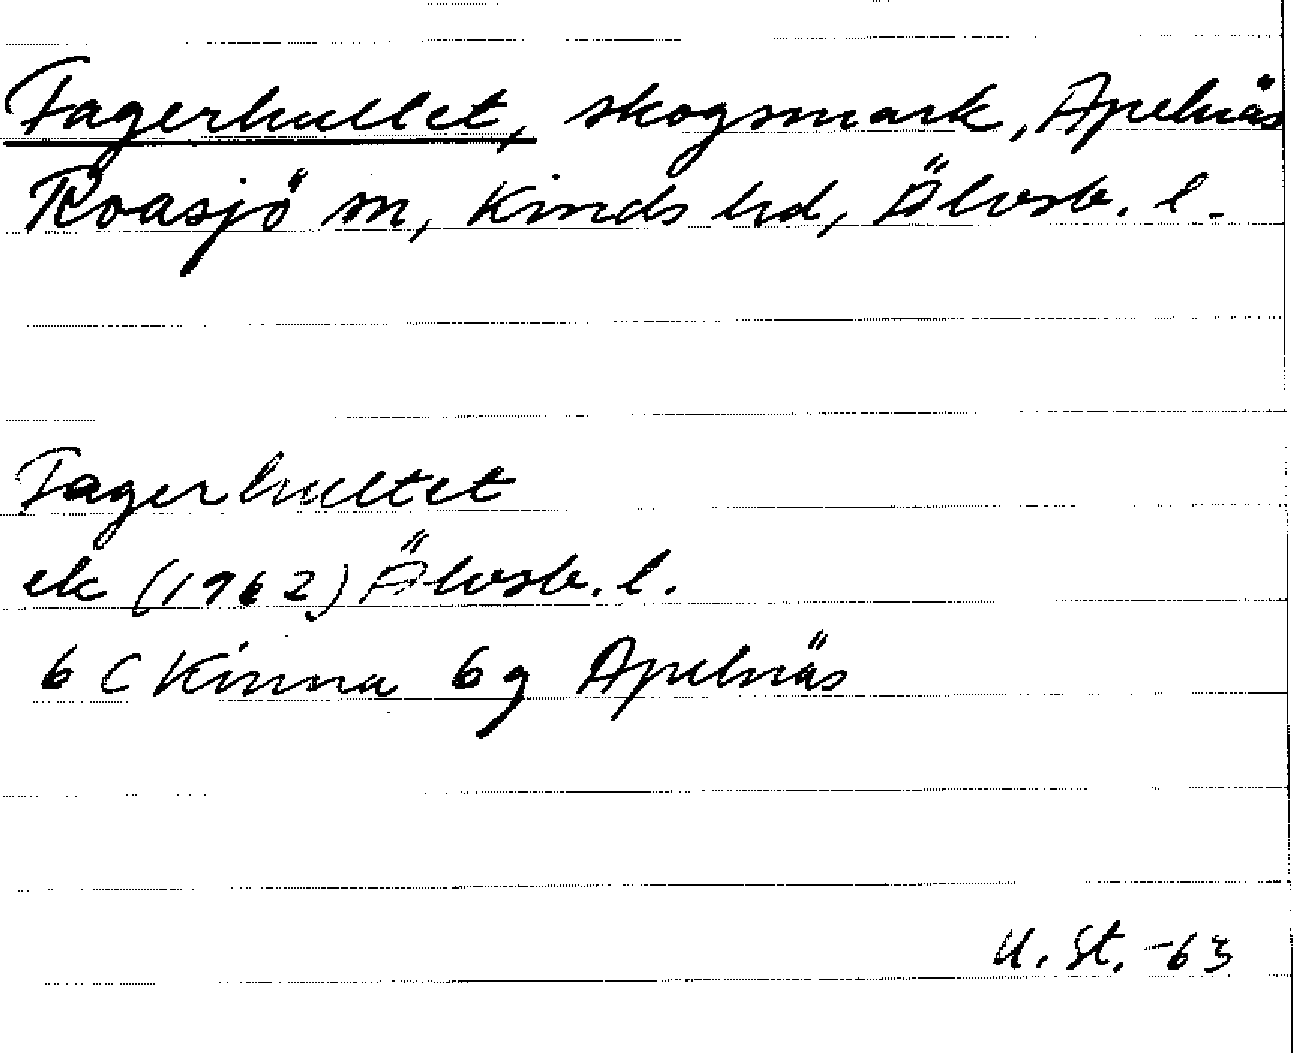 Fagerhullet, skogsmark, Apelnäs
Roasjö sn, Kinds hd, Älvsb. l.
Fagerhultet
ek (1962) Älvsb. l.
6 C Kinna 6g Apelnäs
U. St. -63